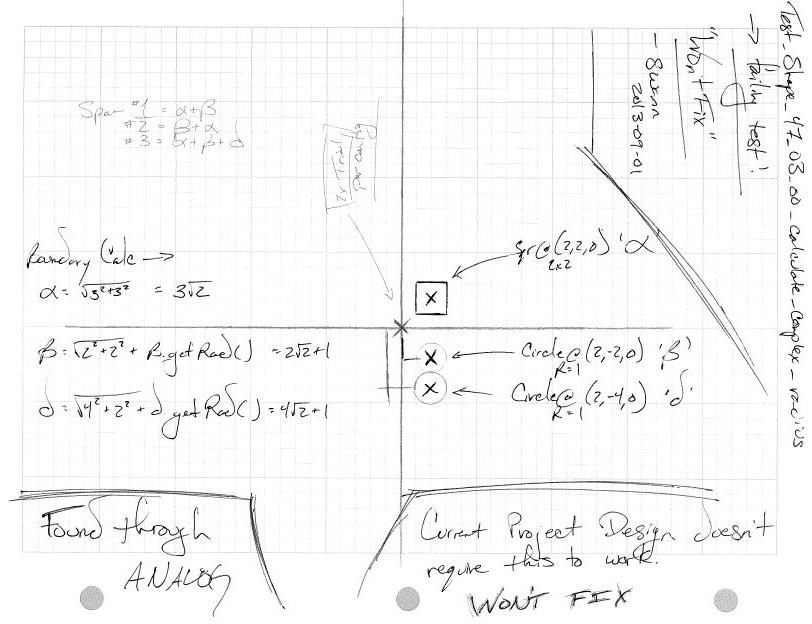 Test_Shape_47_03_00_calculate_complex_radius
→ failing test!
"Wont Fix"
- Swann
2013-09-01
Span #1 = α+β
#2 = β+α
#3 = α+β+δ
per config
Boundary Calc →
α = √3²+3² = 3√2
sqr@(2,2,0) 'α'
2x2
β = √2²+2² + β.getRad() = 2√2+1
Circle@(2,-2,0) 'β'
R=1
δ = √4²+2² + δ getRad() = 4√2+1
Circle@(2,-4,0) 'δ'
R=1
Found through
ANALOG
Current Project Design doesn't
require this to work.
WONT FIX